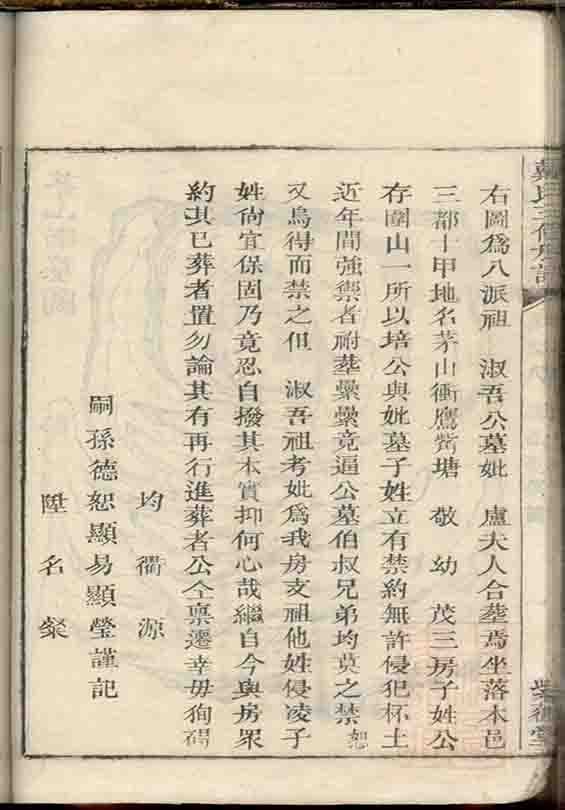 右圖為八派祖　淑吾公墓妣　盧夫人合塟焉坐落本邑
三都十甲地名茅山衝鷹觜塘　敬　幼　茂三房子姓公
存圍山一所以培公與妣墓子姓立有禁約無許侵犯杯土
近年間強禦者祔塟纍纍竟逼公墓伯叔兄弟均莫之禁恕
又烏得而禁之但　淑吾祖考妣為我房支祖他姓侵凌子
姓尙宜保固乃竟忍自撥其本實抑何心哉繼自今與房眾
約其已葬者置勿論其有再行進葬者公仝稟遷幸毋狥
均衢源
嗣孫德恕顯易顯瑩謹記
陞名粲